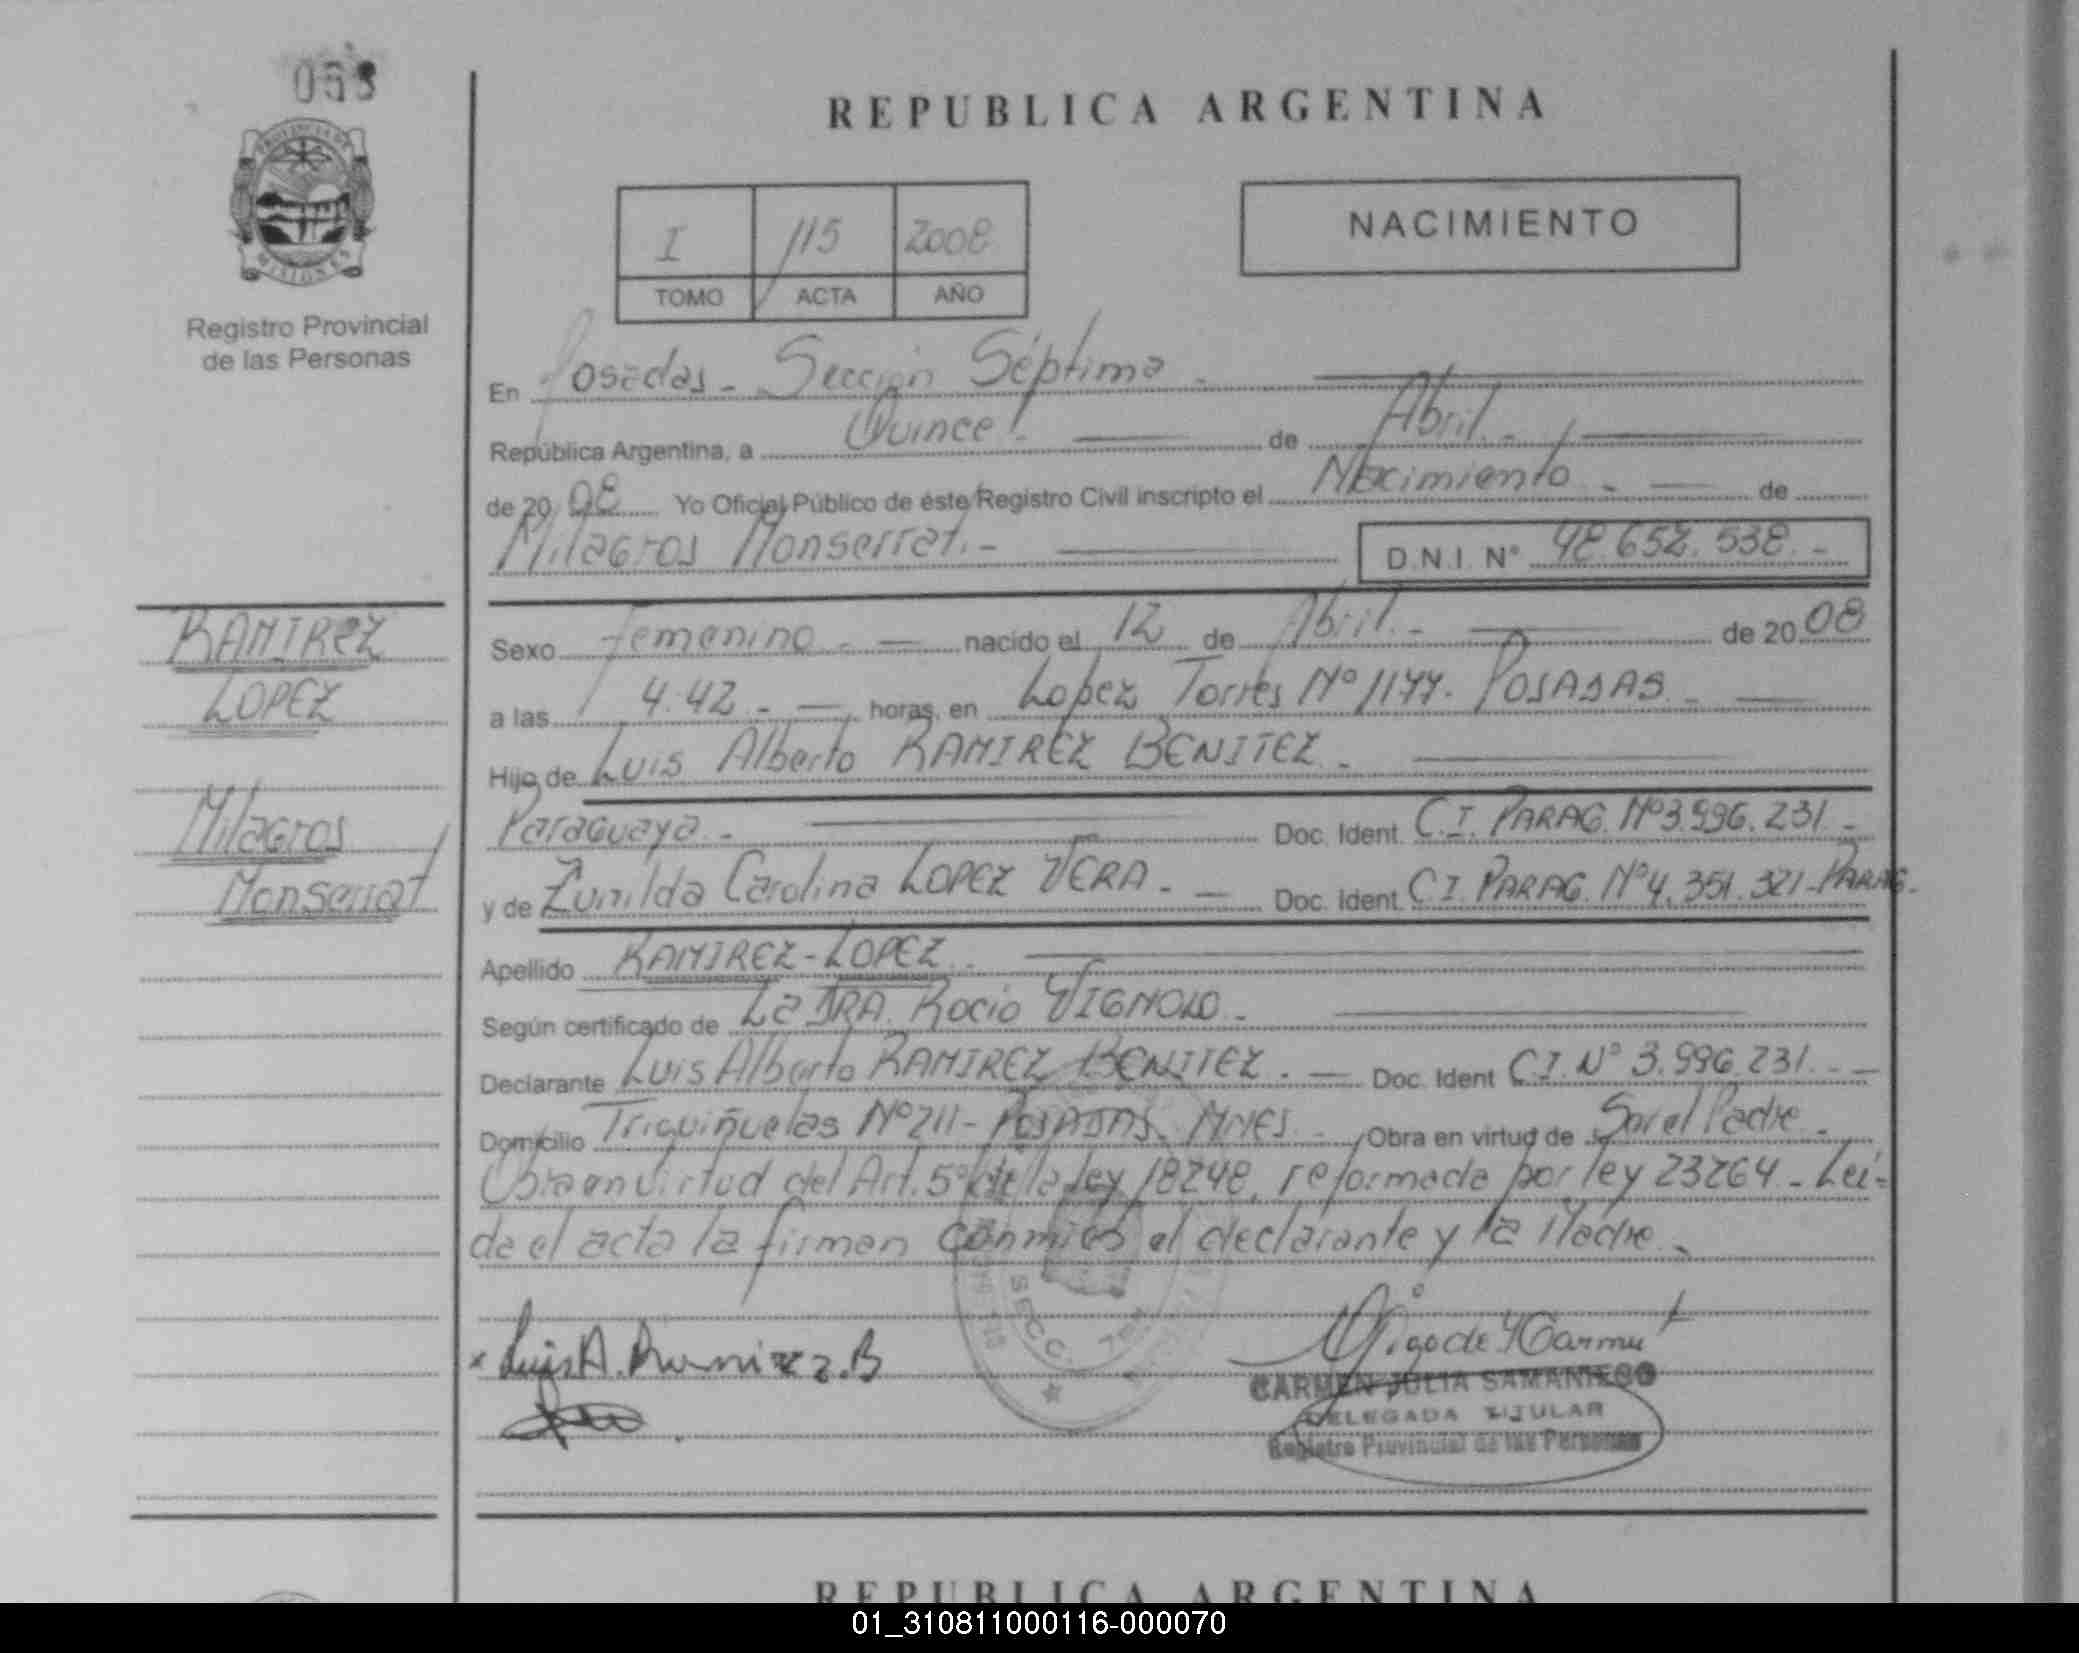 053
REPUBLICA ARGENTINA
PROVINCIA DE
MISIONES
Registro Provincial
de las Personas
I 115 2008
TOMO ACTA AÑO
NACIMIENTO
En Posadas - Sección Séptima -
República Argentina, a Quince.- de Abril.-
de 20 08 Yo Oficial Público de éste Registro Civil inscripto el Nacimiento - de
Milagros Monserrat.- D.N.I. N° 48.652.538.-
RAMIREZ
LOPEZ
Milagros
Monserrat
Sexo Femenino.- nacido el 12 de Abril.- de 20 08
a las 4.42.- horas, en Lopez Torres Nº 1177. POSADAS.-
Hijo de Luis Alberto RAMIREZ BENITEZ.-
Paraguaya.- Doc. Ident. C.I. PARAG. Nº 3.996.231.-
y de Zunilda Carolina LOPEZ VERA.- Doc. Ident. C.I. PARAG. Nº 4.351.321-PARAG.
Apellido RAMIREZ-LOPEZ.-
Según certificado de La DRA. Rocio VIGNOLO.-
Declarante Luis Alberto RAMIREZ BENITEZ.- Doc. Ident C.I. N° 3.996.231.-
Domicilio Triquiñuelas Nº 211- POSADAS. MNES.- Obra en virtud de Ser el Padre.-
Obra en virtud del Art. 5º de la ley 18248, reformada por ley 23264.- Leí-
da el acta la firman conmigo el declarante y la Madre.-
x Luis A. Ramirez.B
SECC. 7ma
CARMEN JULIA SAMANIEGO
DELEGADA TITULAR
Registro Provincial de las Personas
REPUBLICA ARGENTINA
01_310811000116-000070